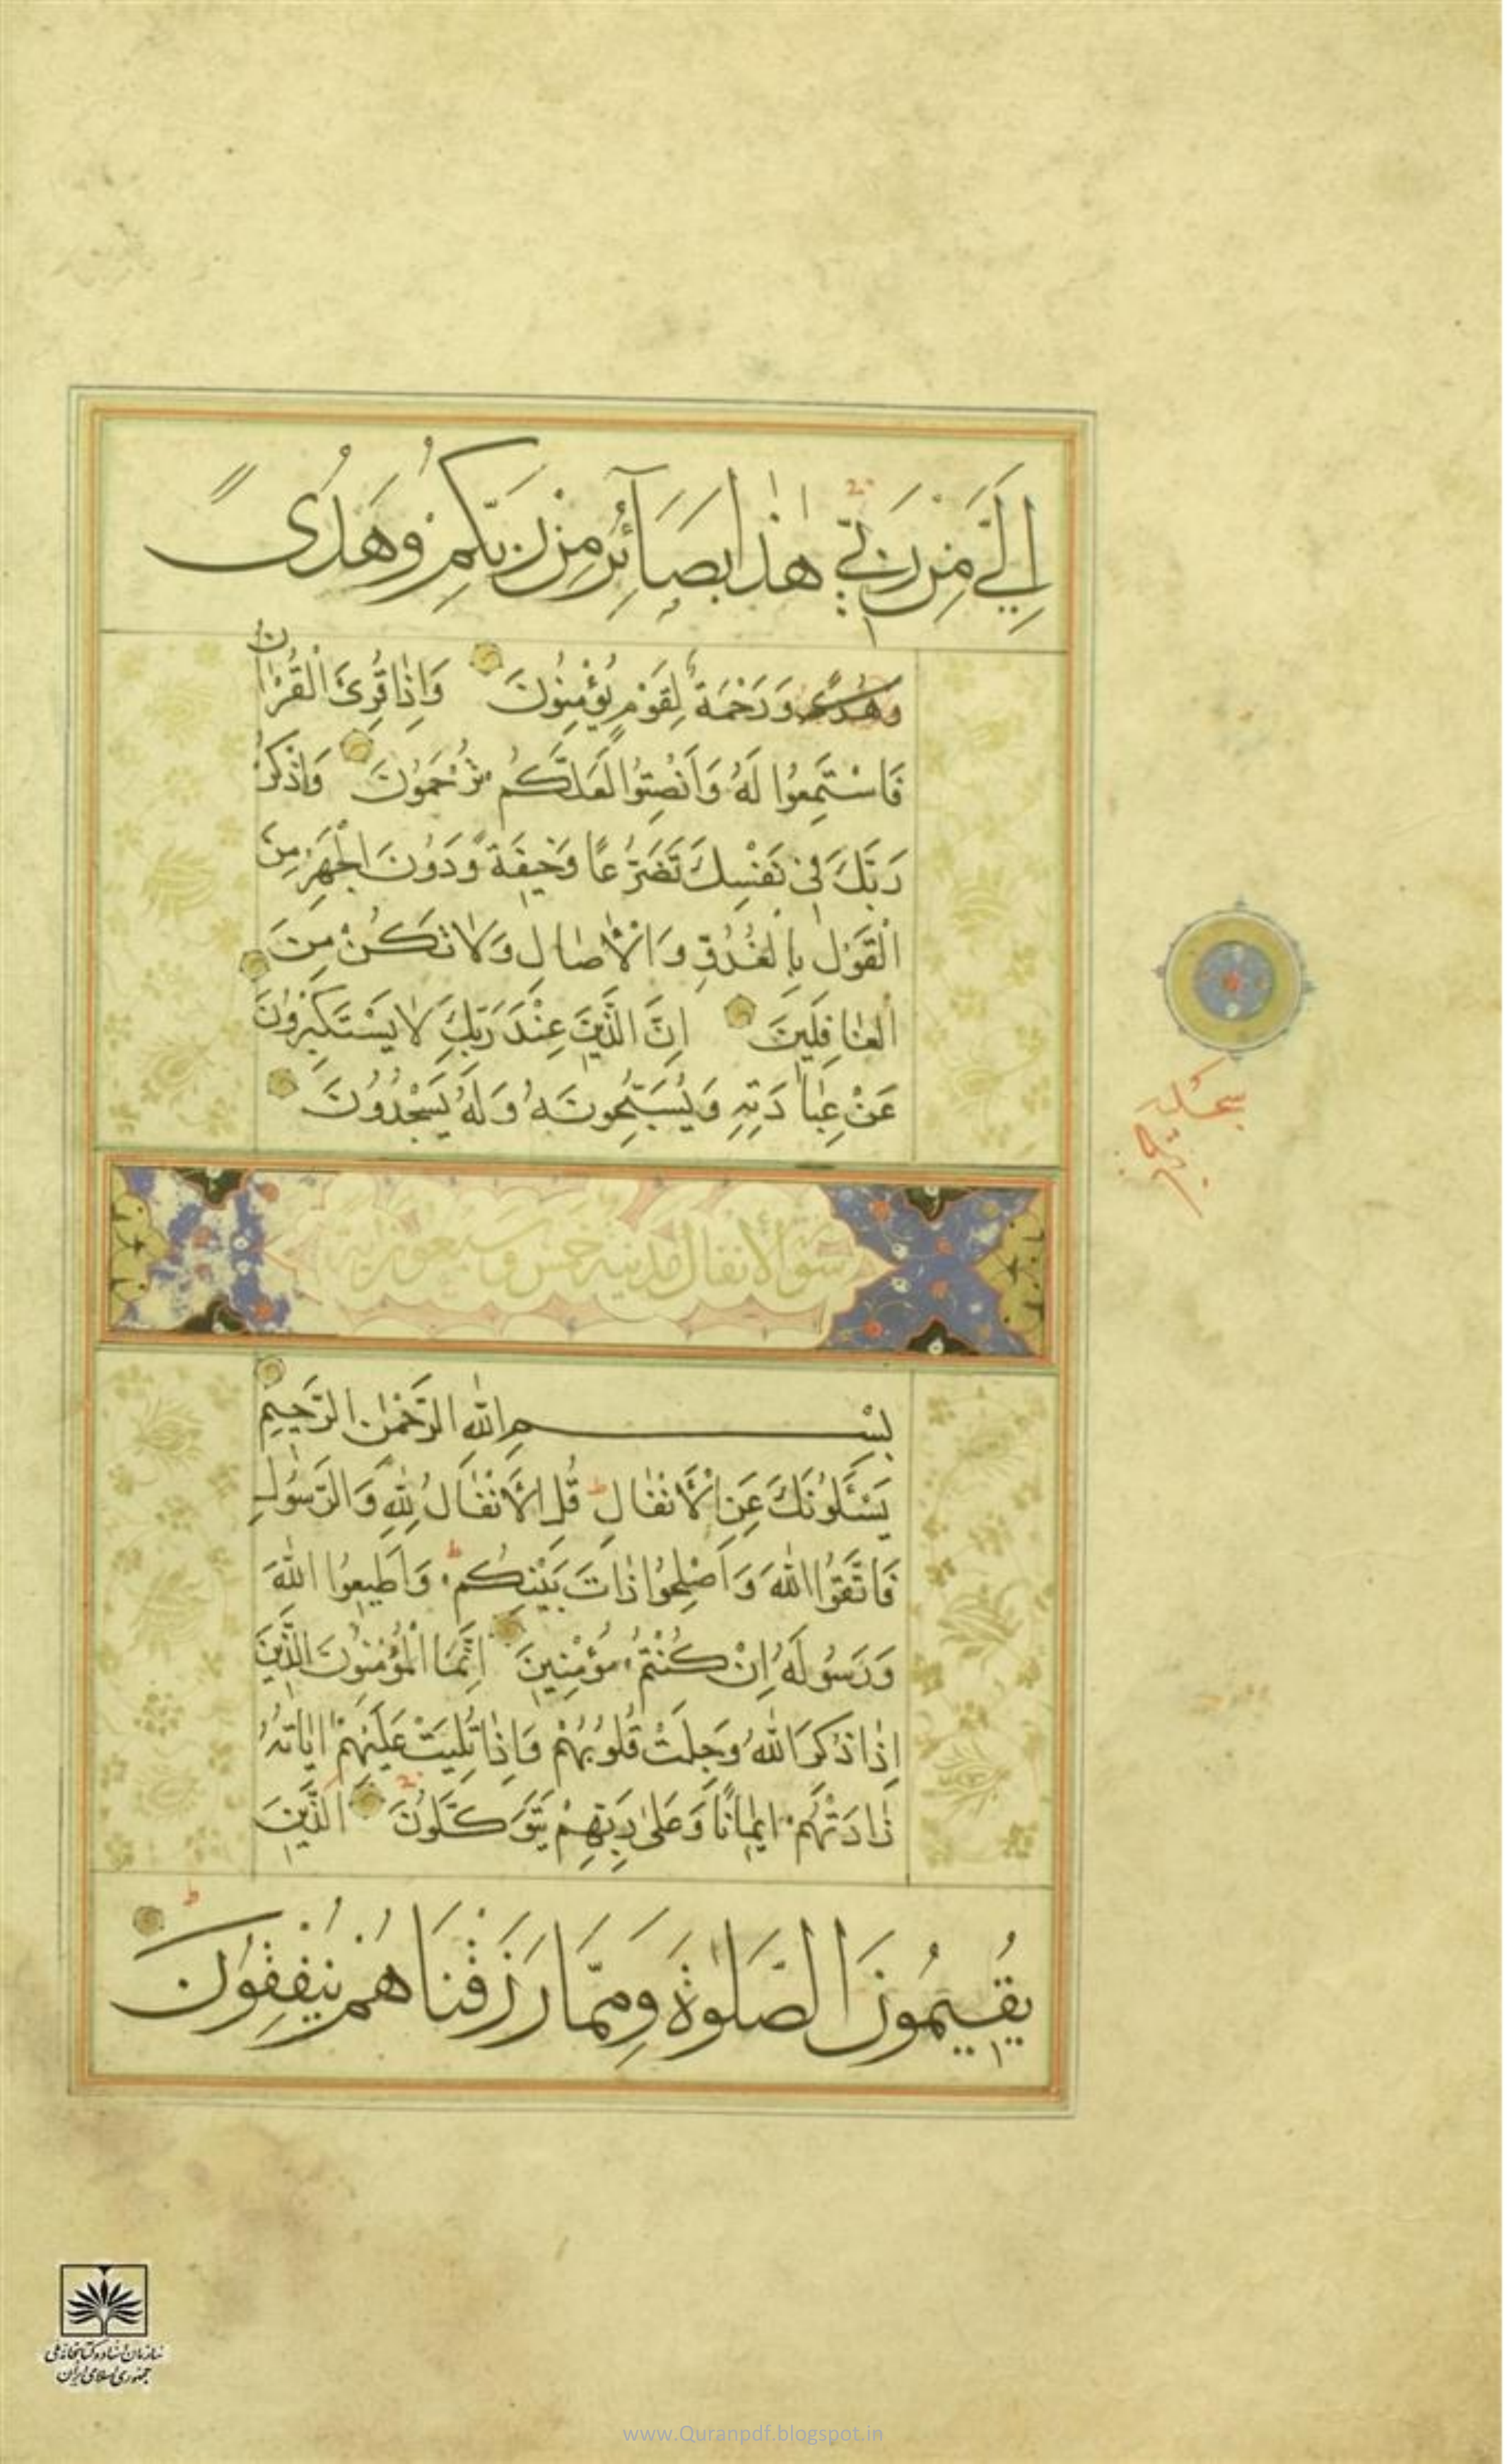 اِلَيَّ مِنْ رَبّي هٰذا بَصَآئِرُ مِنْ رَبِّكُمْ وَهُدًى
وَهُدًى وَرَحْمَةٌ لِقَوْمٍ يُؤْمِنُونَ وَاِذَا قُرِئَ الْقُرْاٰنُ
فَاسْتَمِعُوا لَهُ وَاَنْصِتُوا لَعَلَّكُمْ تُرْحَمُونَ وَاذْكُرْ
رَبَّكَ فِي نَفْسِكَ تَضَرُّعًا وَخِيفَةً وَدُونَ الْجَهْرِ مِنَ
الْقَوْلِ بِالْغُدُوِّ وَالْاٰصَالِ وَلَا تَكُنْ مِنَ
الْغَافِلِينَ اِنَّ الَّذِينَ عِنْدَ رَبِّكَ لَا يَسْتَكْبِرُونَ
عَنْ عِبَادَتِهِ وَيُسَبِّحُونَهُ وَلَهُ يَسْجُدُونَ
سجده
سورة الأنفال مدنية خمس وسبعون آية
بِسْمِ اللّٰهِ الرَّحْمٰنِ الرَّحِيمِ
يَسْـَٔلُونَكَ عَنِ الْاَنْفَالِ قُلِ الْاَنْفَالُ لِلّٰهِ وَالرَّسُولِ
فَاتَّقُوا اللّٰهَ وَاَصْلِحُوا ذَاتَ بَيْنِكُمْ وَاَطِيعُوا اللّٰهَ
وَرَسُولَهُ اِنْ كُنْتُمْ مُؤْمِنِينَ اِنَّمَا الْمُؤْمِنُونَ الَّذِينَ
اِذَا ذُكِرَ اللّٰهُ وَجِلَتْ قُلُوبُهُمْ وَاِذَا تُلِيَتْ عَلَيْهِمْ اٰيَاتُهُ
زَادَتْهُمْ اِيمَانًا وَعَلٰى رَبِّهِمْ يَتَوَكَّلُونَ الَّذِينَ
يُقِيمُونَ الصَّلٰوةَ وَمِمَّا رَزَقْنَاهُمْ يُنْفِقُونَ
سازمان اسناد و کتابخانه ملی
جمهوری اسلامی ایران
www.Quranpdf.blogspot.in